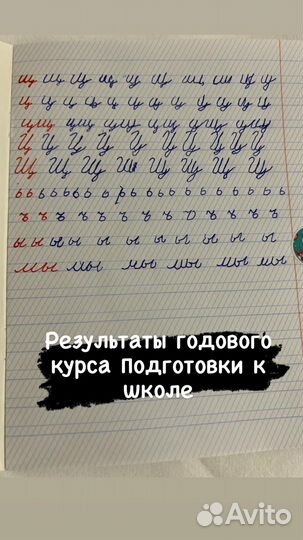 щ щ щ щ щ щ щ щ щ щ
ц ц ц ц ц ц ц ц ц ц ц
цщ цщ цщ цщ цщ цщ
Ц Ц Ц Ц Ц Ц Ц Ц Ц Ц
Щ Щ Щ Щ Щ Щ Щ Щ
ь ь ь ь ь ь ь ь ь ь ь ь ь ь ь ь
ъ ъ ъ ъ ъ ъ ъ ъ ъ ъ ъ
ы ы ы ы ы ы ы ы ы ы
мы мы мы мы мы мы
Результаты годового
курса Подготовки к
школе
Avito